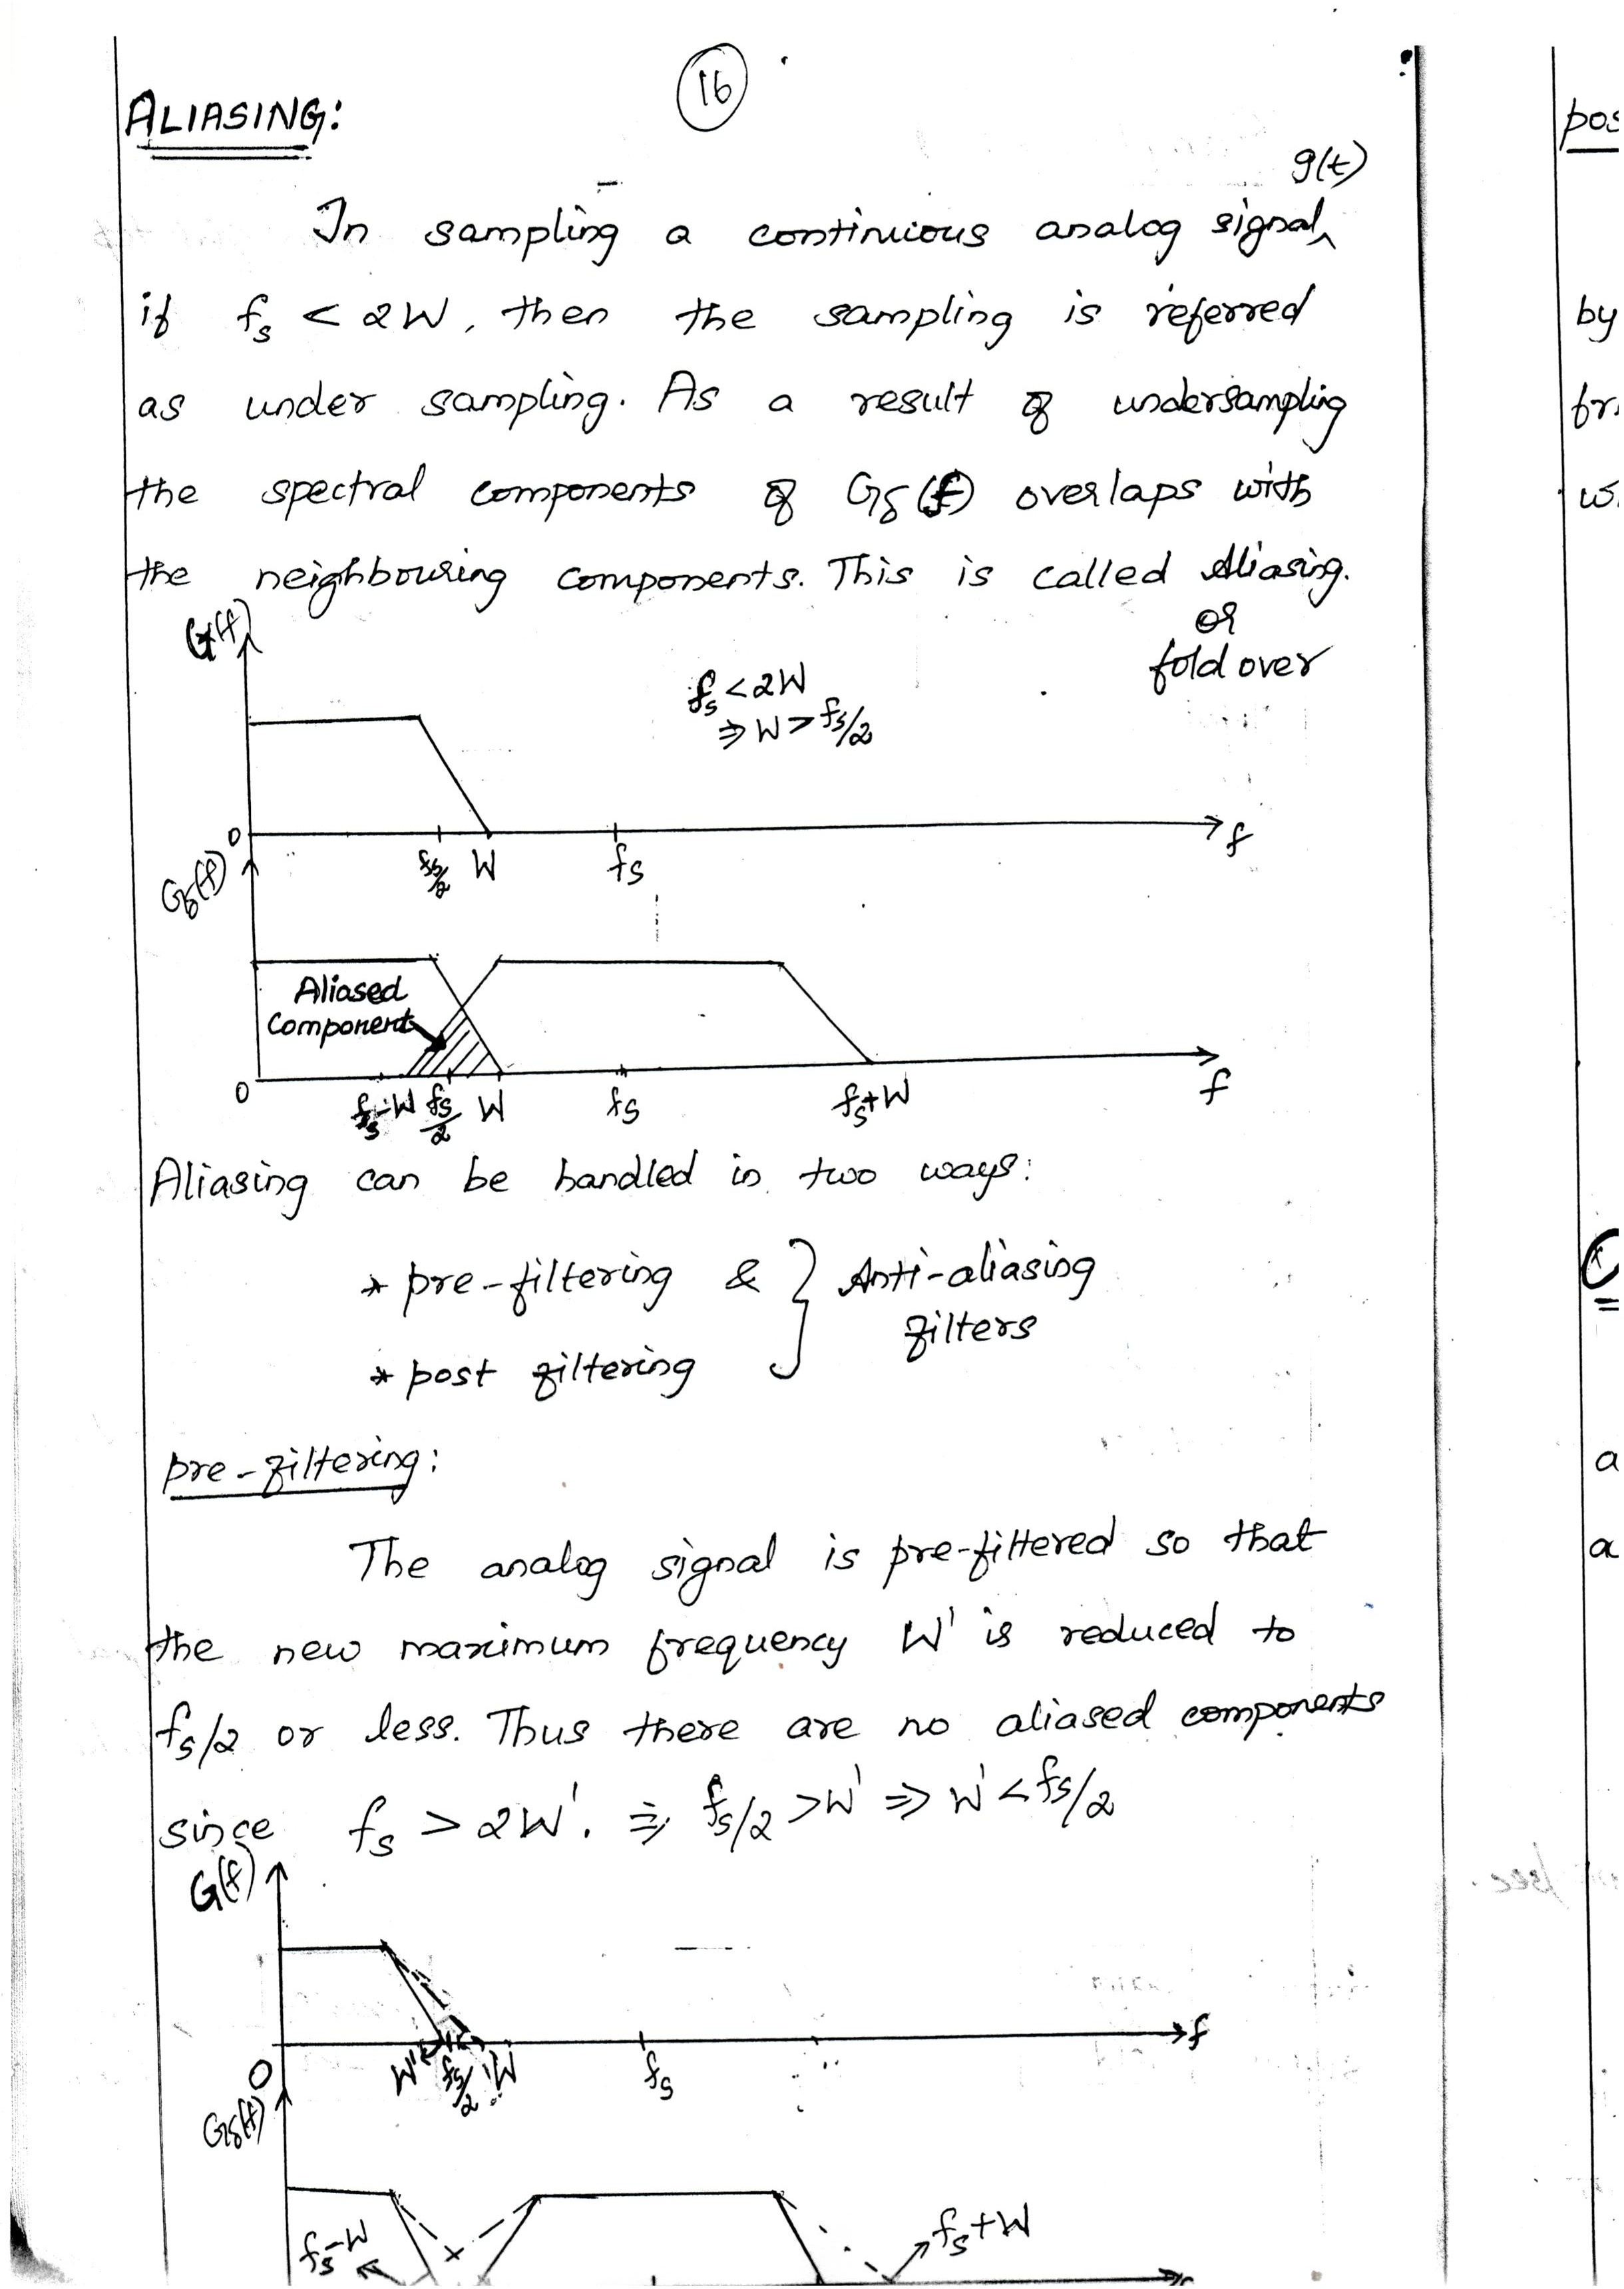 16
ALIASING:
g(t)
In sampling a continuious analog signal^
if fs < 2W, then the sampling is referred
as under sampling. As a result of undersampling
the spectral components of Gδ(f) overlaps with
the neighbouring components. This is called Aliasing.
or
fold over
G(f)
fs < 2W
⇒ W > fs/2
0
fs/2 W fs f
Gδ(f)
Aliased
Component
0
fs-W fs/2 W fs fs+W f
Aliasing can be handled in two ways:
* pre-filtering & } Anti-aliasing
filters
* post filtering
pre-filtering:
The analog signal is pre-filtered so that
the new maximum frequency W' is reduced to
fs/2 or less. Thus there are no aliased components
since fs > 2W'. ⇒ fs/2 > W' ⇒ W' < fs/2
G(f)
f
0
W' fs/2 W fs
Gδ(f)
fs-W
fs+W
pos
by
fr
w
C
a
a